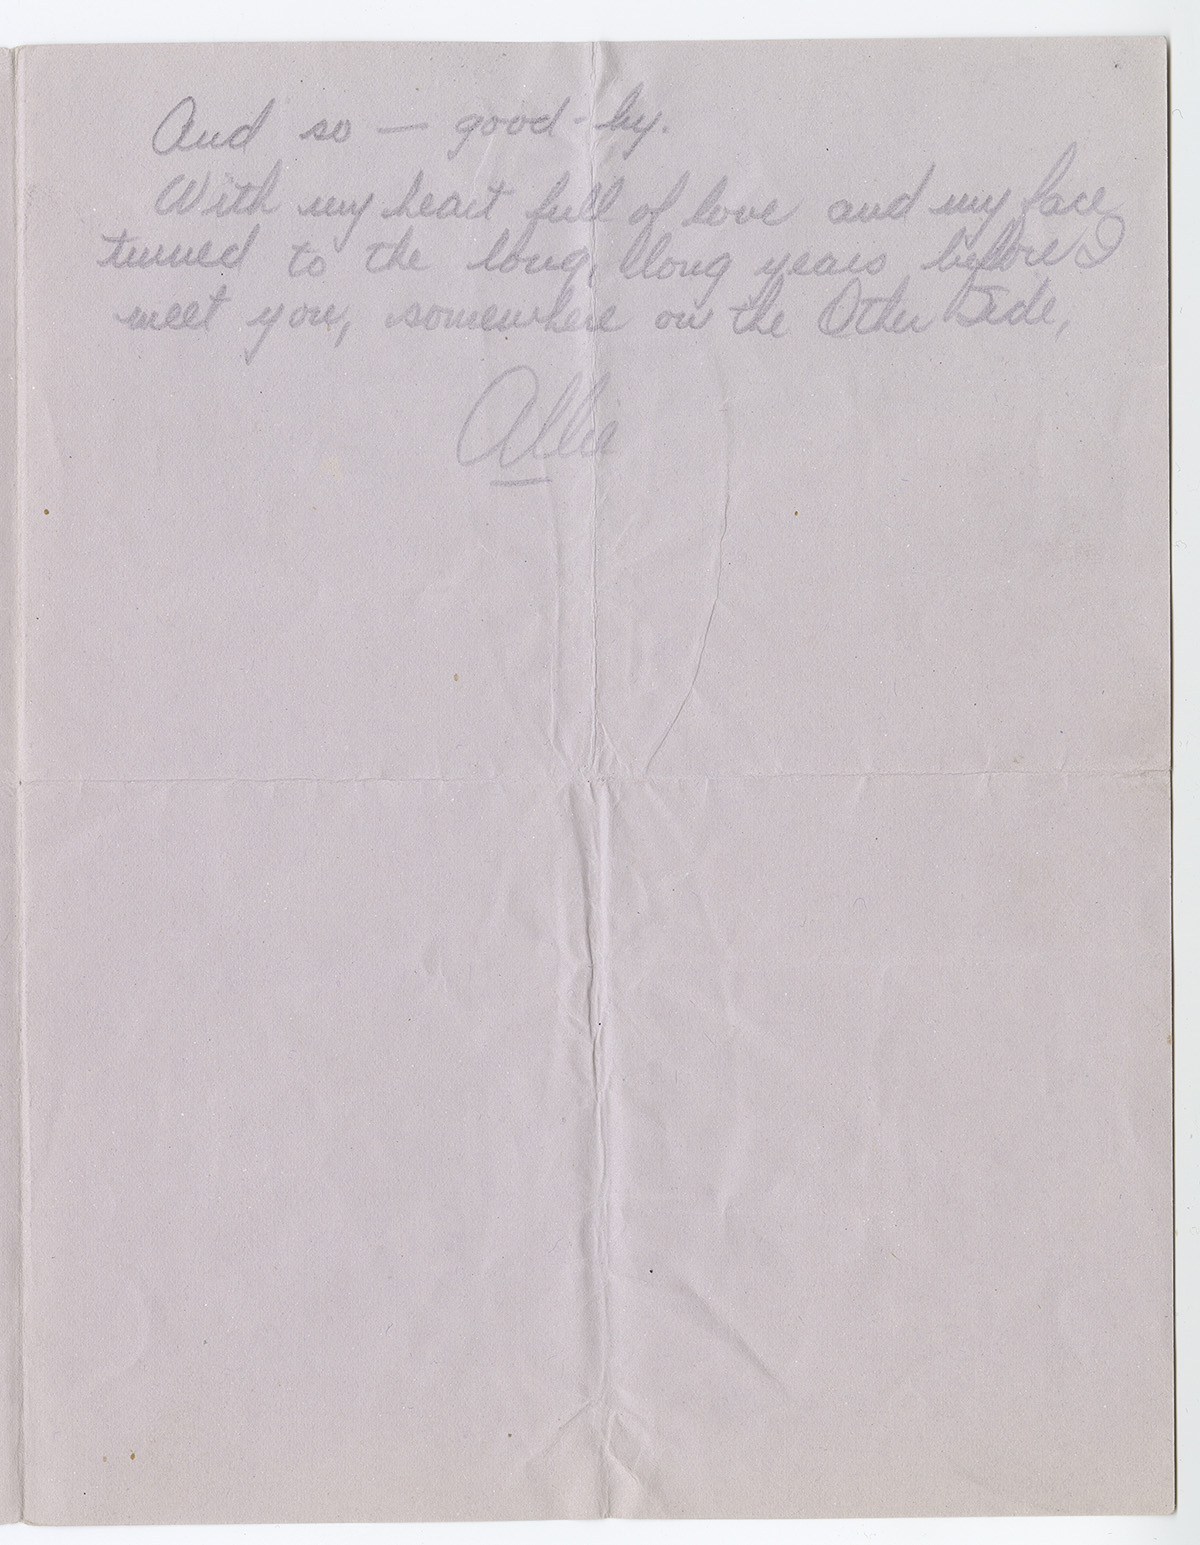 And so — good-by.
With my heart full of love and my face
turned to the long, long years before I
meet you, somewhere on the Other Side,
Allie